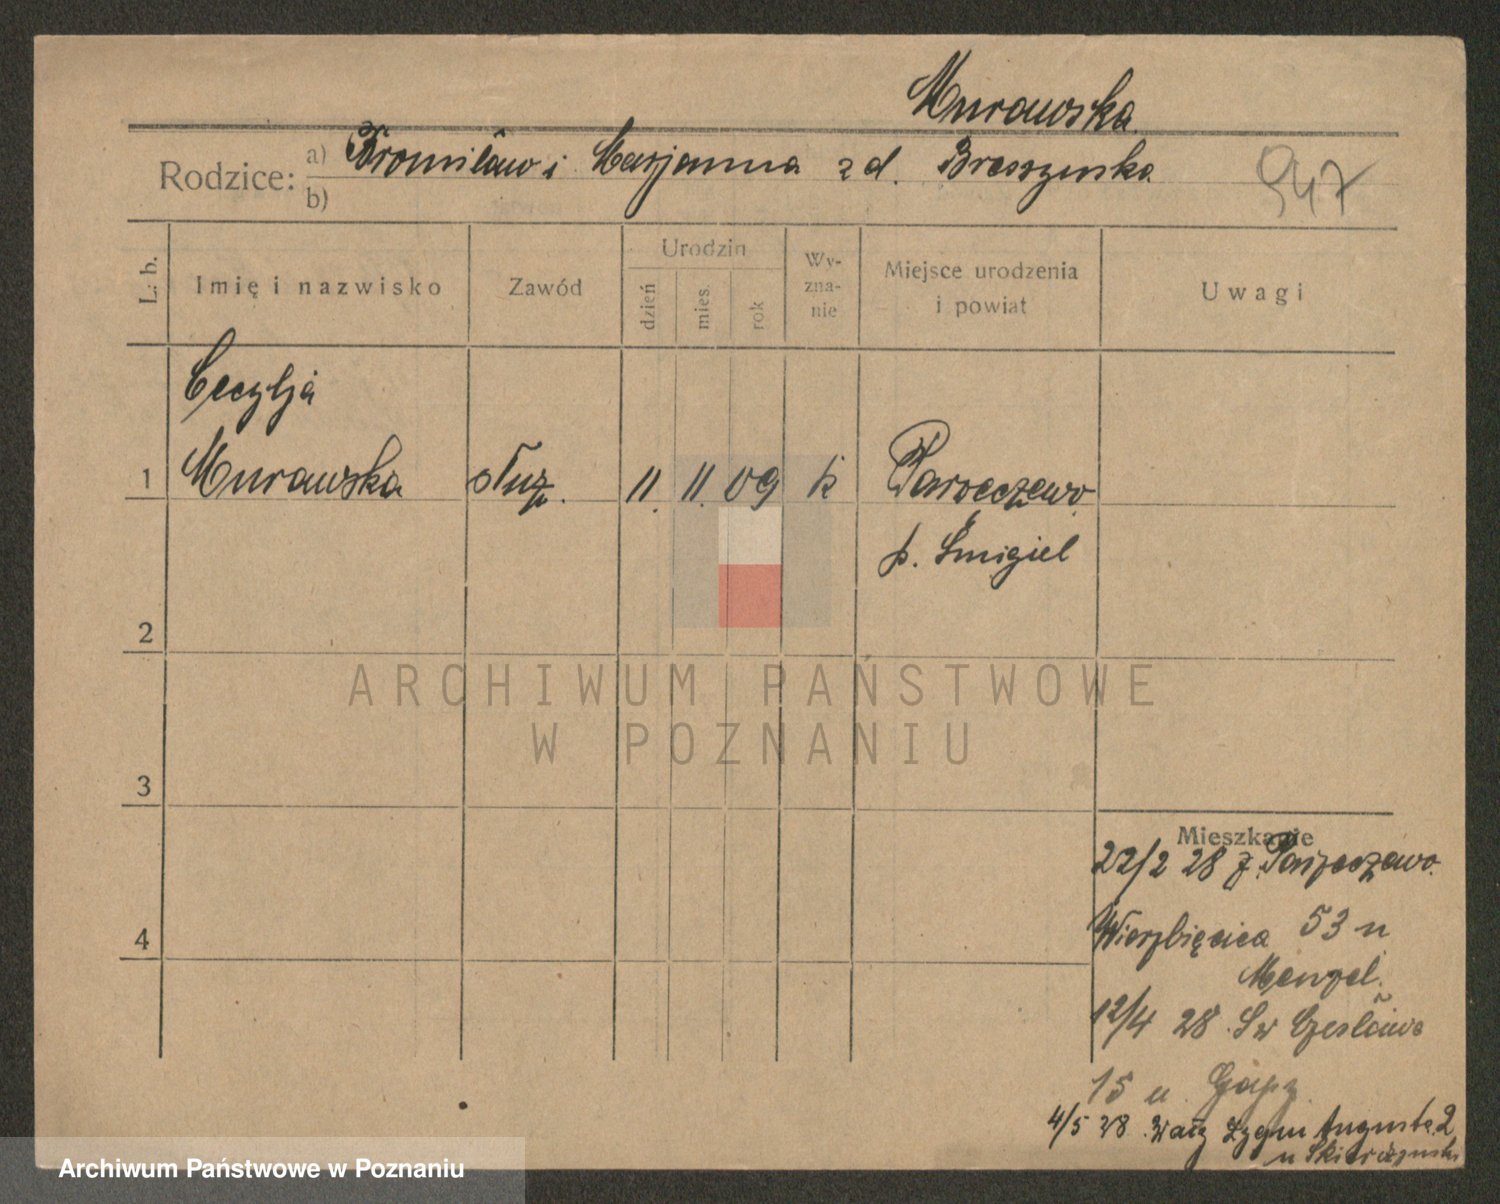 Murawska
Rodzice: a) Bronisław i Marjanna z d. Breszyńska
947
b)
L. b.
Imię i nazwisko
Zawód
Urodzin
dzień
mies.
rok
Wy-
zna-
nie
Miejsce urodzenia
i powiat
Uwagi
Cecylja
1 Murawska służ. 11. 11. 09 k Parzęczewo
p. Śmigiel
2
ARCHIWUM PAŃSTWOWE
W POZNANIU
3
Mieszkanie
22/2 28 z Parzęczewo.
4
Wierzbięcica 53 u
Menzel.
12/4 28. Św Czesława
15 u
4/5 28 Zygm Augusta 2
u
Archiwum Państwowe w Poznaniu